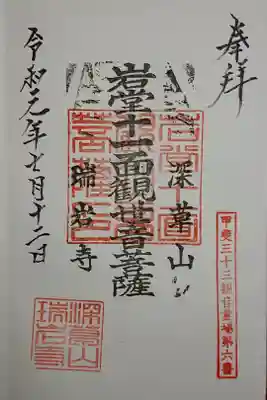 奉拝
深草山
岩堂十一面観世音菩薩
瑞岩寺
令和元年七月十二日
甲斐三十三観音霊場第六番
深草山
瑞岩寺